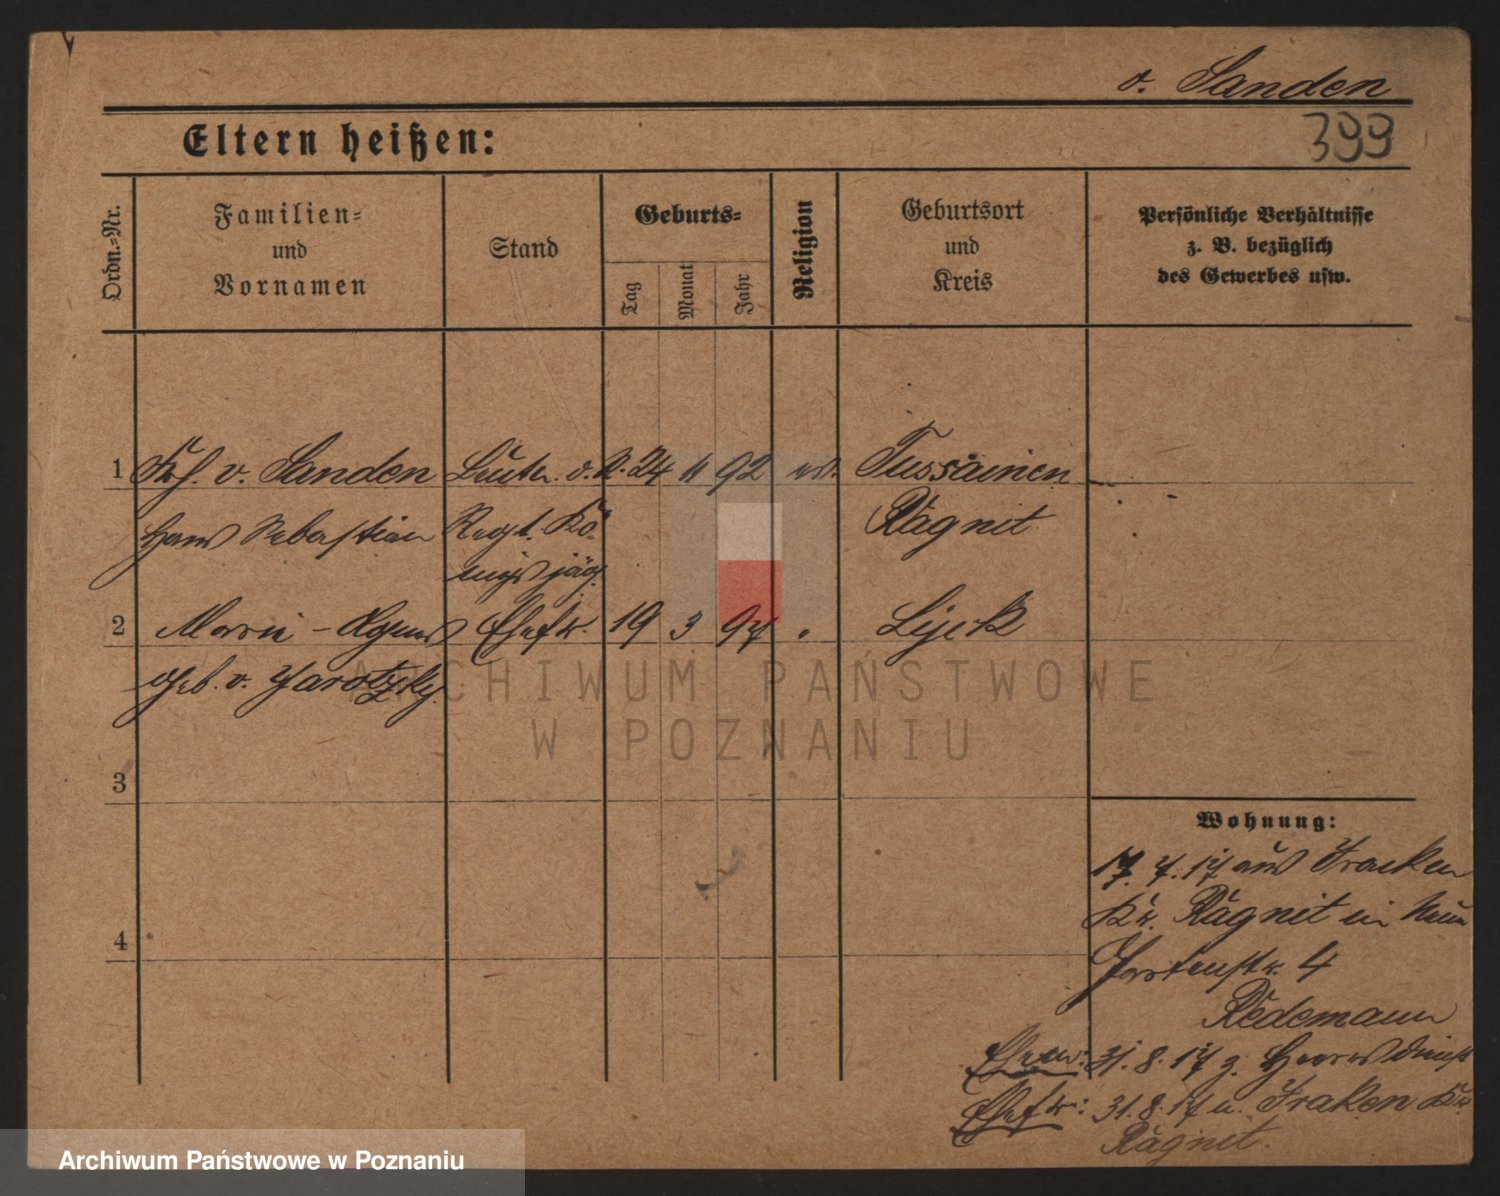 v. Sanden
Eltern heißen:
399
Ordn.-Nr.
Familien-
und
Vornamen
Stand
Geburts-
Tag
Monat
Jahr
Religion
Geburtsort
und
Kreis
Persönliche Verhältnisse
z. B. bezüglich
des Gewerbes usw.
1 Frh. v. Sanden Leutn. d. R. 24 11 92 ev. Tussainen
Hans Sebastian Regt. Kö-
Ragnit
nigsjäg.
2 Marie-Agnes Ehefr. 19 3 97 " Lyck
geb. v. Jarotzky.
3
4
Wohnung:
17. 7. 17 aus Fraken
Kr. Ragnit in
Gartenstr. 4
Redemann
Ehem.: 31. 8. 17 z. Heeresdienst
Ehefr.: 31. 8. 17 n. Fraken Kr.
Ragnit.
ARCHIWUM PAŃSTWOWE
W POZNANIU
Archiwum Państwowe w Poznaniu